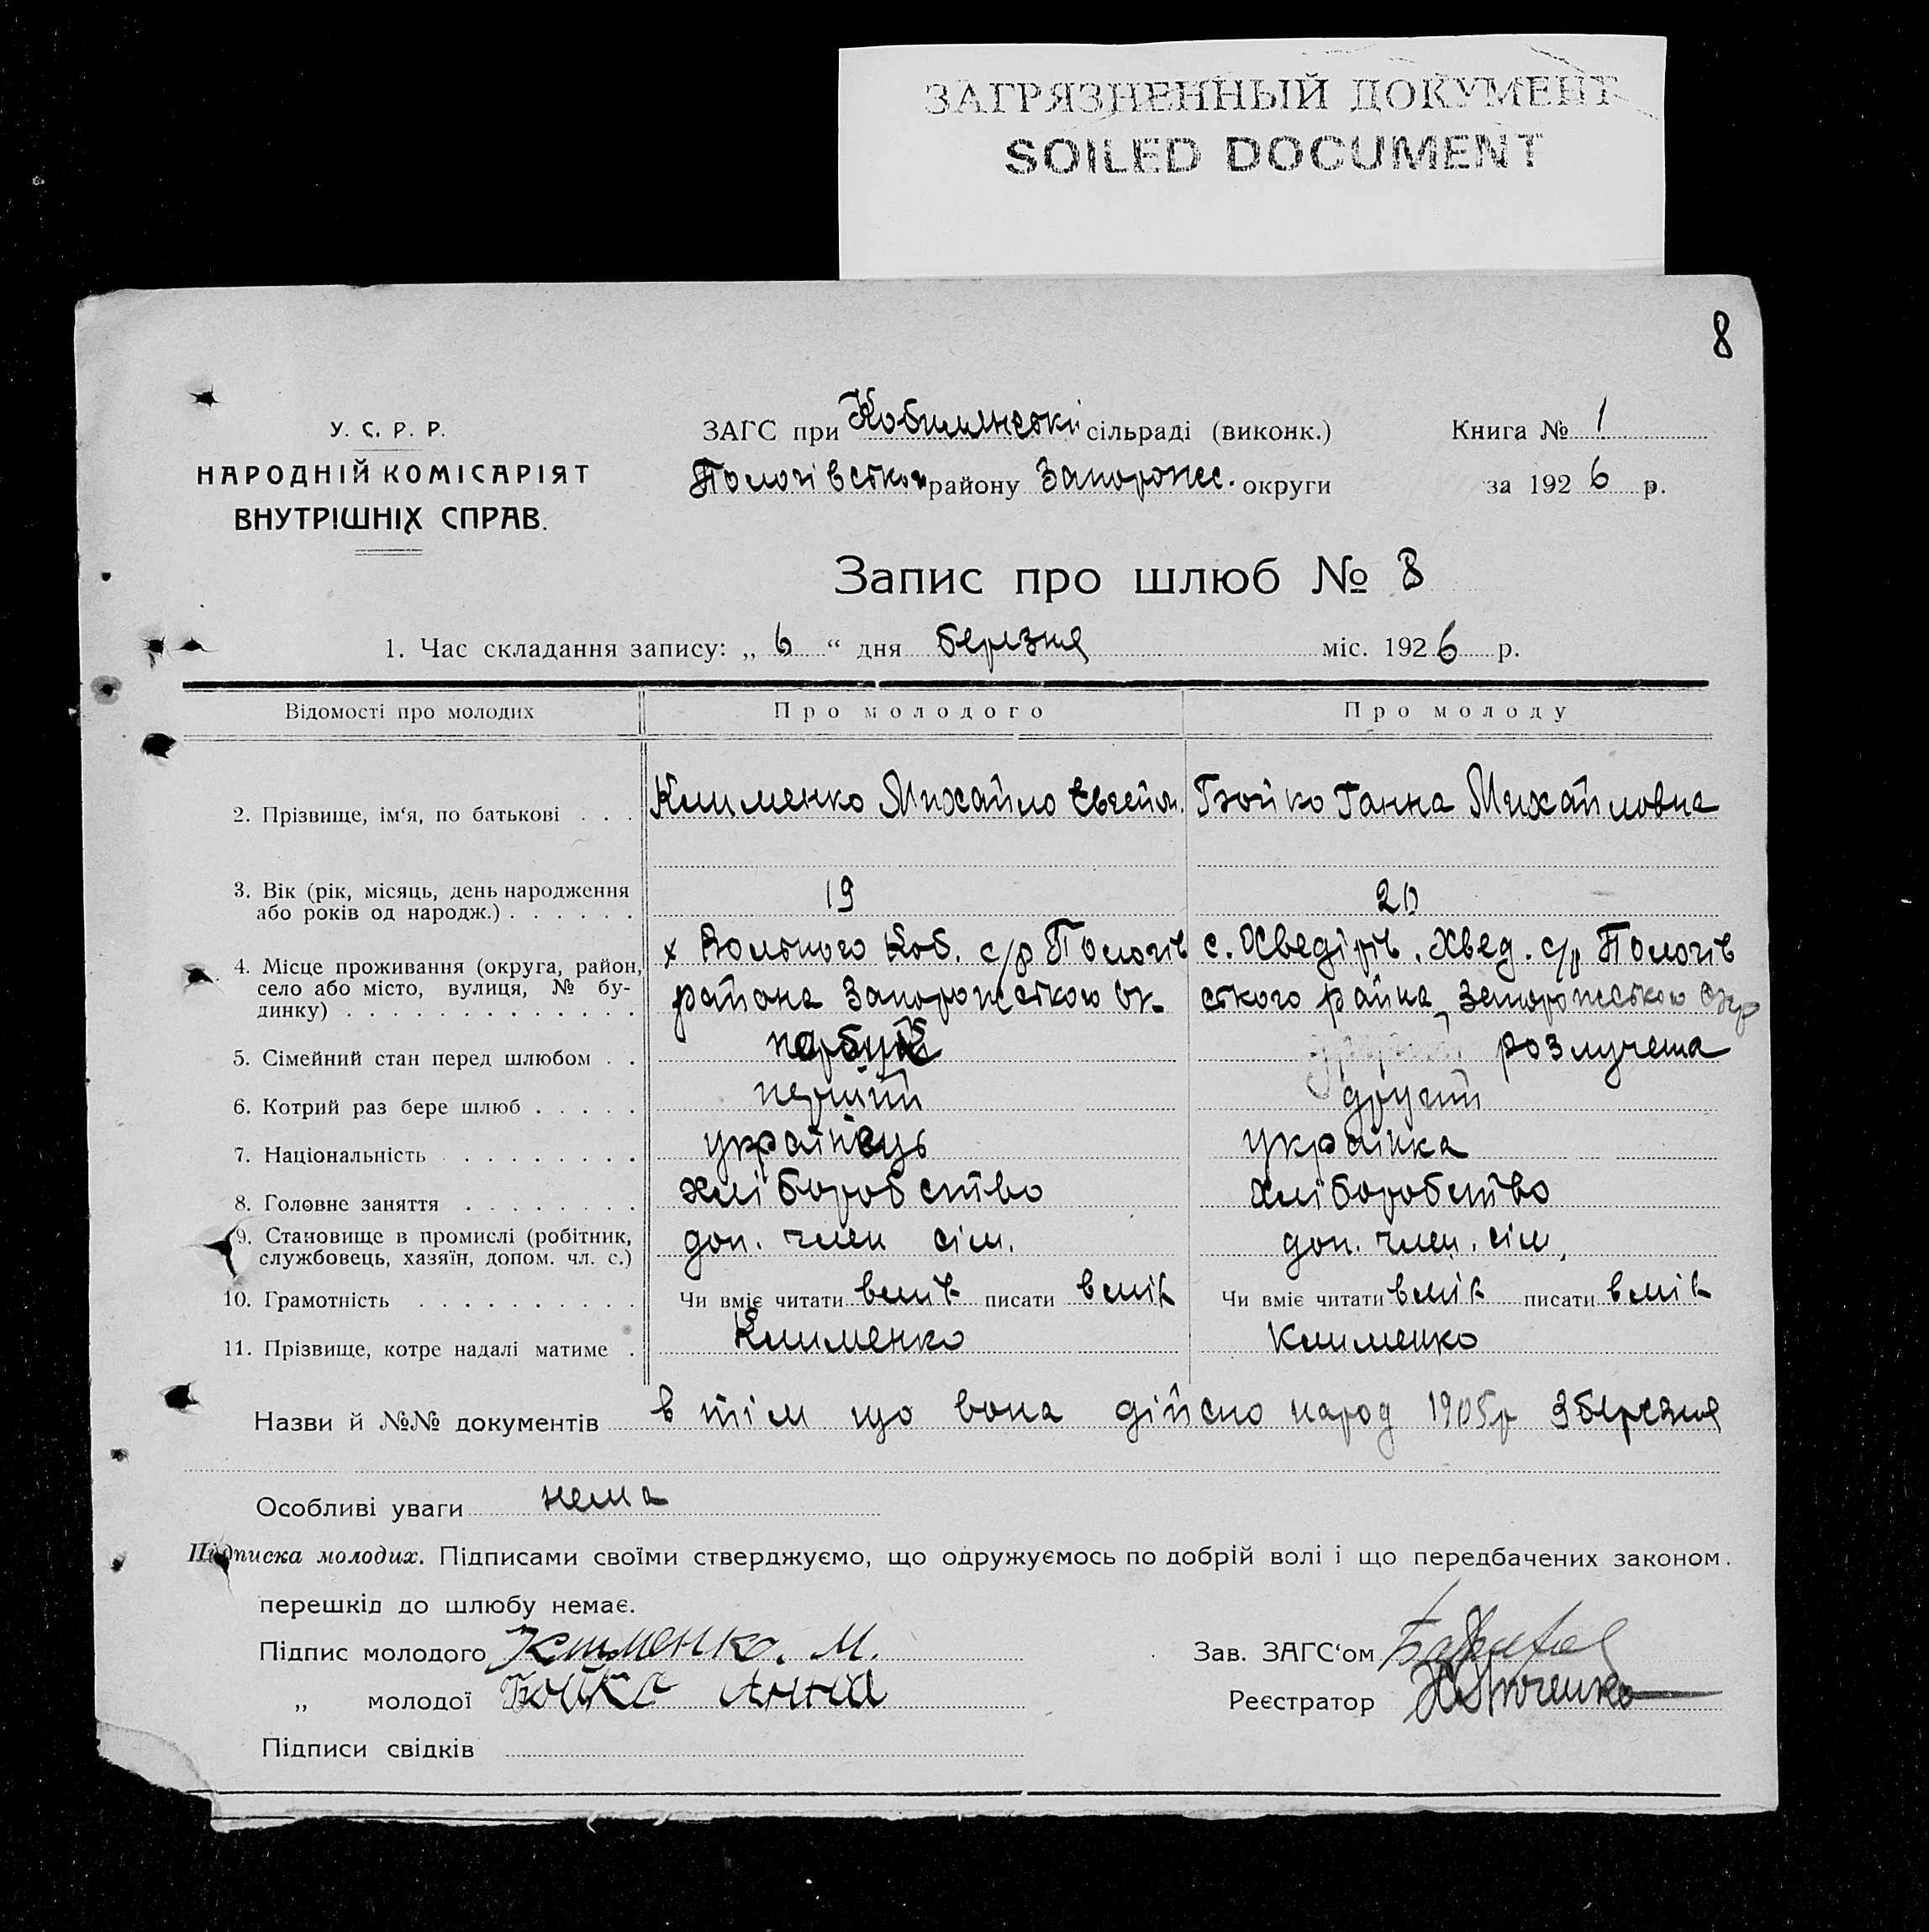 ЗАГРЯЗНЕННЫЙ ДОКУМЕНТ
SOILED DOCUMENT
8
У. С. Р. Р.
НАРОДНІЙ КОМІСАРІЯТ
ВНУТРІШНІХ СПРАВ.
ЗАГС при Кобилянські сільраді (виконк.)
Пологівськог району Запорожс. округи
Книга № 1
за 1926 р.
Запис про шлюб № 8
1. Час складання запису: „ 6 “ дня березня міс. 1926 р.
Відомості про молодих
Про молодого
Про молоду
2. Прізвище, ім‘я, по батькові . . .
Клименко Михайло Євгейов.
Бойко Ганна Михайловна
3. Вік (рік, місяць, день народження
або років од народж.) . . . . . .
19
20
4. Місце проживання (округа, район,
село або місто, вулиця, № бу-
динку) . . . . . . . . . . . . .
х Вольного Коб. с/р Пологів
района Запорожською ок.
с. Хведірів. Хвед. с/р Пологів
ського район Запорожською Окр
5. Сімейний стан перед шлюбом . .
парубок
розлучена
6. Котрий раз бере шлюб . . . . .
перший
другий
7. Національність . . . . . . . . .
українець
українка
8. Головне заняття . . . . . . . .
хліборобство
хліборобство
9. Становище в промислі (робітник,
службовець, хазяїн, допом. чл. с.)
доп. член сім.
доп. член. сім,
10. Грамотність . . . . . . . . . .
Чи вміє читати вміє писати вміє
Чи вміє читати вміє писати вміє
11. Прізвище, котре надалі матиме .
Клименко
Клименко
Назви й №№ документів в тім що вона дійсно народ 1905р 9 березня
Особливі уваги нема
Підписка молодих. Підписами своїми стверджуємо, що одружуємось по добрій волі і що передбачених законом.
перешкід до шлюбу немає.
Підпис молодого Клименко. М.
„ молодої Бойко Анна
Підписи свідків
Зав. ЗАГС‘ом
Реєстратор